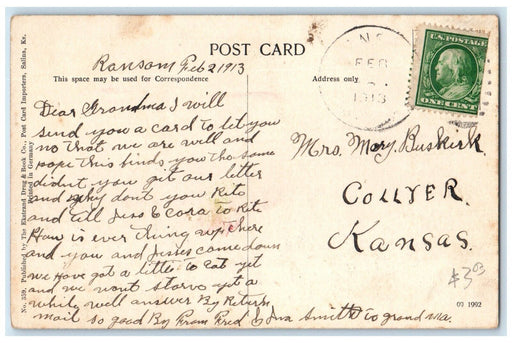 POST CARD
Ransom Feb 2 1913
This space may be used for Correspondence
Address only
Dear Grandma I will
send you a card to let you
no that we are well and
hope this finds you the same
didnt you git our letter
and why dont you Rite
and tell Jess & Cora to Rite
How is ever thing up there
and you and Jesses come down
we Have got a little to Eat yet
and we wont starve yet a
while well answer By Return
mail so good By From Fred & Iva Smith to grandma.
FEB
1913
U.S. POSTAGE
ONE CENT
Mrs. Mary. Buskirk
COLLYER.
Kansas.
$3.00
09 1992
No. 339. Published by The Ekstrand Drug & Book Co., Post Card Importers, Salina, Ks.
Printed in Germany